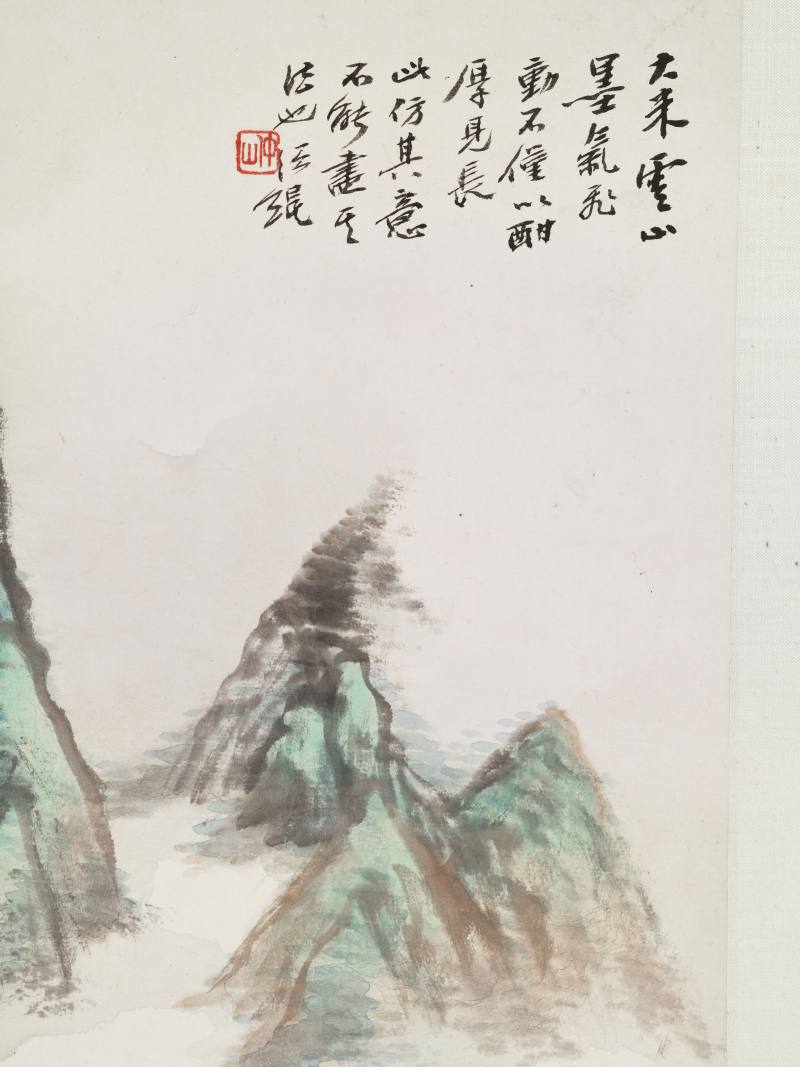 大米雲山
墨氣飛
動不僅以酣
厚見長
此仿其意
不能盡其
法也汪琨
仲山